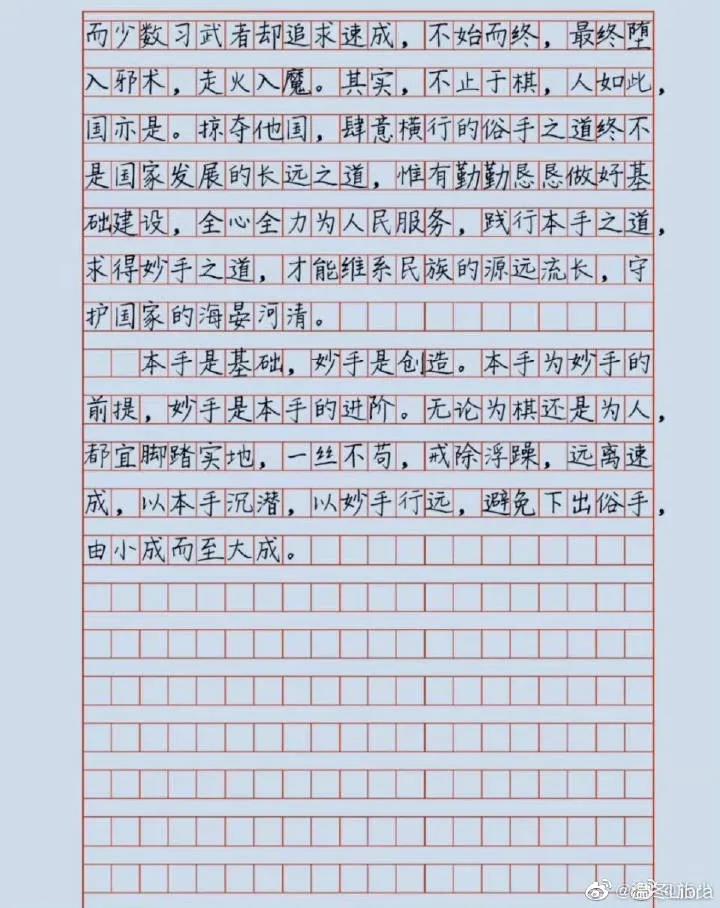 而少数习武者却追求速成，不始而终，最终堕
入邪术，走火入魔。其实，不止于棋，人如此，
国亦是。掠夺他国，肆意横行的俗手之道终不
是国家发展的长远之道，惟有勤勤恳恳做好基
础建设，全心全力为人民服务，践行本手之道，
求得妙手之道，才能维系民族的源远流长，守
护国家的海晏河清。
本手是基础，妙手是创造。本手为妙手的
前提，妙手是本手的进阶。无论为棋还是为人，
都宜脚踏实地，一丝不苟，戒除浮躁，远离速
成，以本手沉潜，以妙手行远，避免下出俗手，
由小成而至大成。